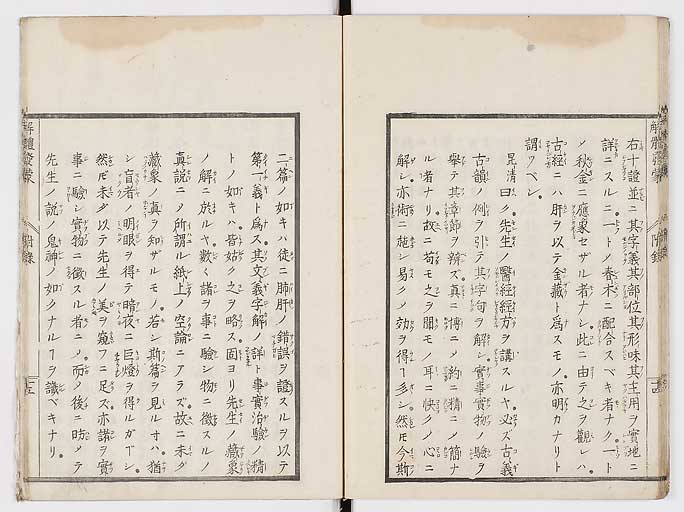 右十證並ニ其字義其部位其形味其主用ヲ實地ニ
詳ニスルニ一トノ春木ニ配合スベキ者ナク一ト
ノ秋金ニ應象セザル者ナシ此ニ由テ之ヲ觀レハ
古經ニハ肝ヲ以テ金藏ト爲スモノ亦明カナリト
謂ツベシ
晃清曰ク先生ノ醫經經方ヲ講スルヤ必ズ古義
古韻ノ例ヲ引テ其字句ヲ解シ實事實物ノ驗ヲ
擧テ其章節ヲ辨ズ真ニ博ニノ約ニ精ニノ簡ナ
ル者ナリ故ニ苟モ之ヲ聞モノ耳ニ快クノ心ニ
解シ亦術ニ施シ易クノ効ヲ得ー多シ然ドモ今斯
二篇ノ如キハ徒ニ肺肝ノ錯誤ヲ證スルヲ以テ
第一義ト爲ス其文義字解ノ詳ト事實治驗ノ精
トノ如キハ皆姑ク之ヲ略ス固ヨリ先生ノ藏象
ノ解ニ於ルヤ數〻諸ヲ事ニ驗シ物ニ徴スルノ
真説ニノ所謂ル紙上ノ空論ニアラズ故ニ未ダ
藏象ノ真ヲ知ザルモノ若シ斯篇ヲ見ルトキハ猶
シ盲者ノ明眼ヲ得テ暗夜ニ巨燈ヲ得ルガーシ
然ドモ未ダ以テ先生ノ美ヲ窺フニ足ズ亦諸ヲ實
事ニ驗シ實物ニ徴スル者ニノ而ノ後ニ始メテ
先生ノ説ノ鬼神ノ如クナルーヲ識ベキナリ
解體發蒙
附錄